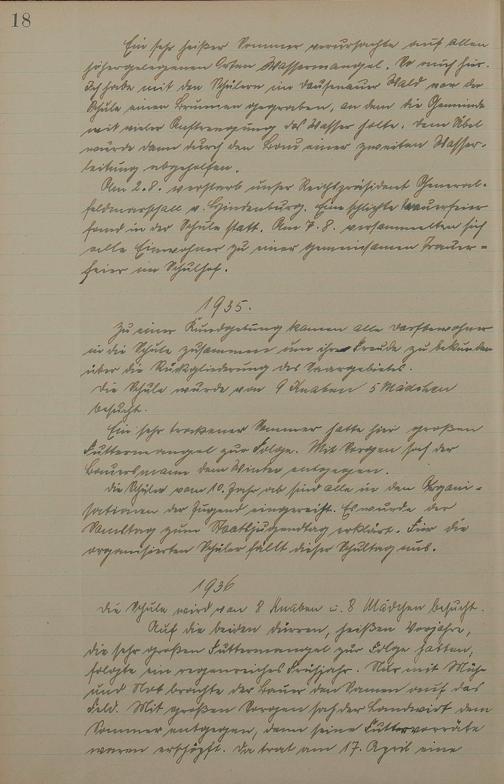 18
Ein sehr heißer Sommer verursachte auf allen
höhergelegenen Orten Wassermangel. So auch hier.
Ich habe mit den Schülern im Dausenauer Wald vor der
Schule einen Brunnen gegraben, an dem die Gemeinde
mit vieler Anstrengung das Wasser holte. Dem Übel
wurde dann durch den Bau einer zweiten Wasser-
leitung abgeholfen.
Am 2.8. verstarb unser Reichspräsident General-
feldmarschall v. Hindenburg. Eine schlichte Trauerfeier
fand in der Schule statt. Am 7.8. versammelten sich
alle Einwohner zu einer gemeinsamen Trauer-
feier im Schulhof.
1935.
Zu einer Kundgebung kamen alle Dorfbewohner
in die Schule zusammen um ihre Freude zu bekunden
über die Rückgliederung des Saargebietes.
Die Schule wurde von 9 Knaben 5 Mädchen
besucht.
Ein sehr trockener Sommer hatte hier großen
Futtermangel zur Folge. Mit Sorgen sah der
Bauersmann dem Winter entgegen.
Die Schüler vom 10. Jahr ab sind alle in den Organi-
sationen der Jugend eingereiht. Es wurde der
Samstag zum Staatsjugendtag erklärt. Für die
organisierten Schüler fällt dieser Schultag aus.
1936
Die Schule wird von 8 Knaben u. 8 Mädchen besucht.
Auf die beiden dürren, heißen Vorjahre,
die sehr großen Futtermangel zur Folge hatten,
folgte ein regenreiches Frühjahr. Nur mit Müh
und Not brachte der Bauer den Samen auf das
Feld. Mit großen Sorgen sah der Landwirt dem
Sommer entgegen, denn seine Futtervorräte
waren erschöpft. Da trat am 17. April eine